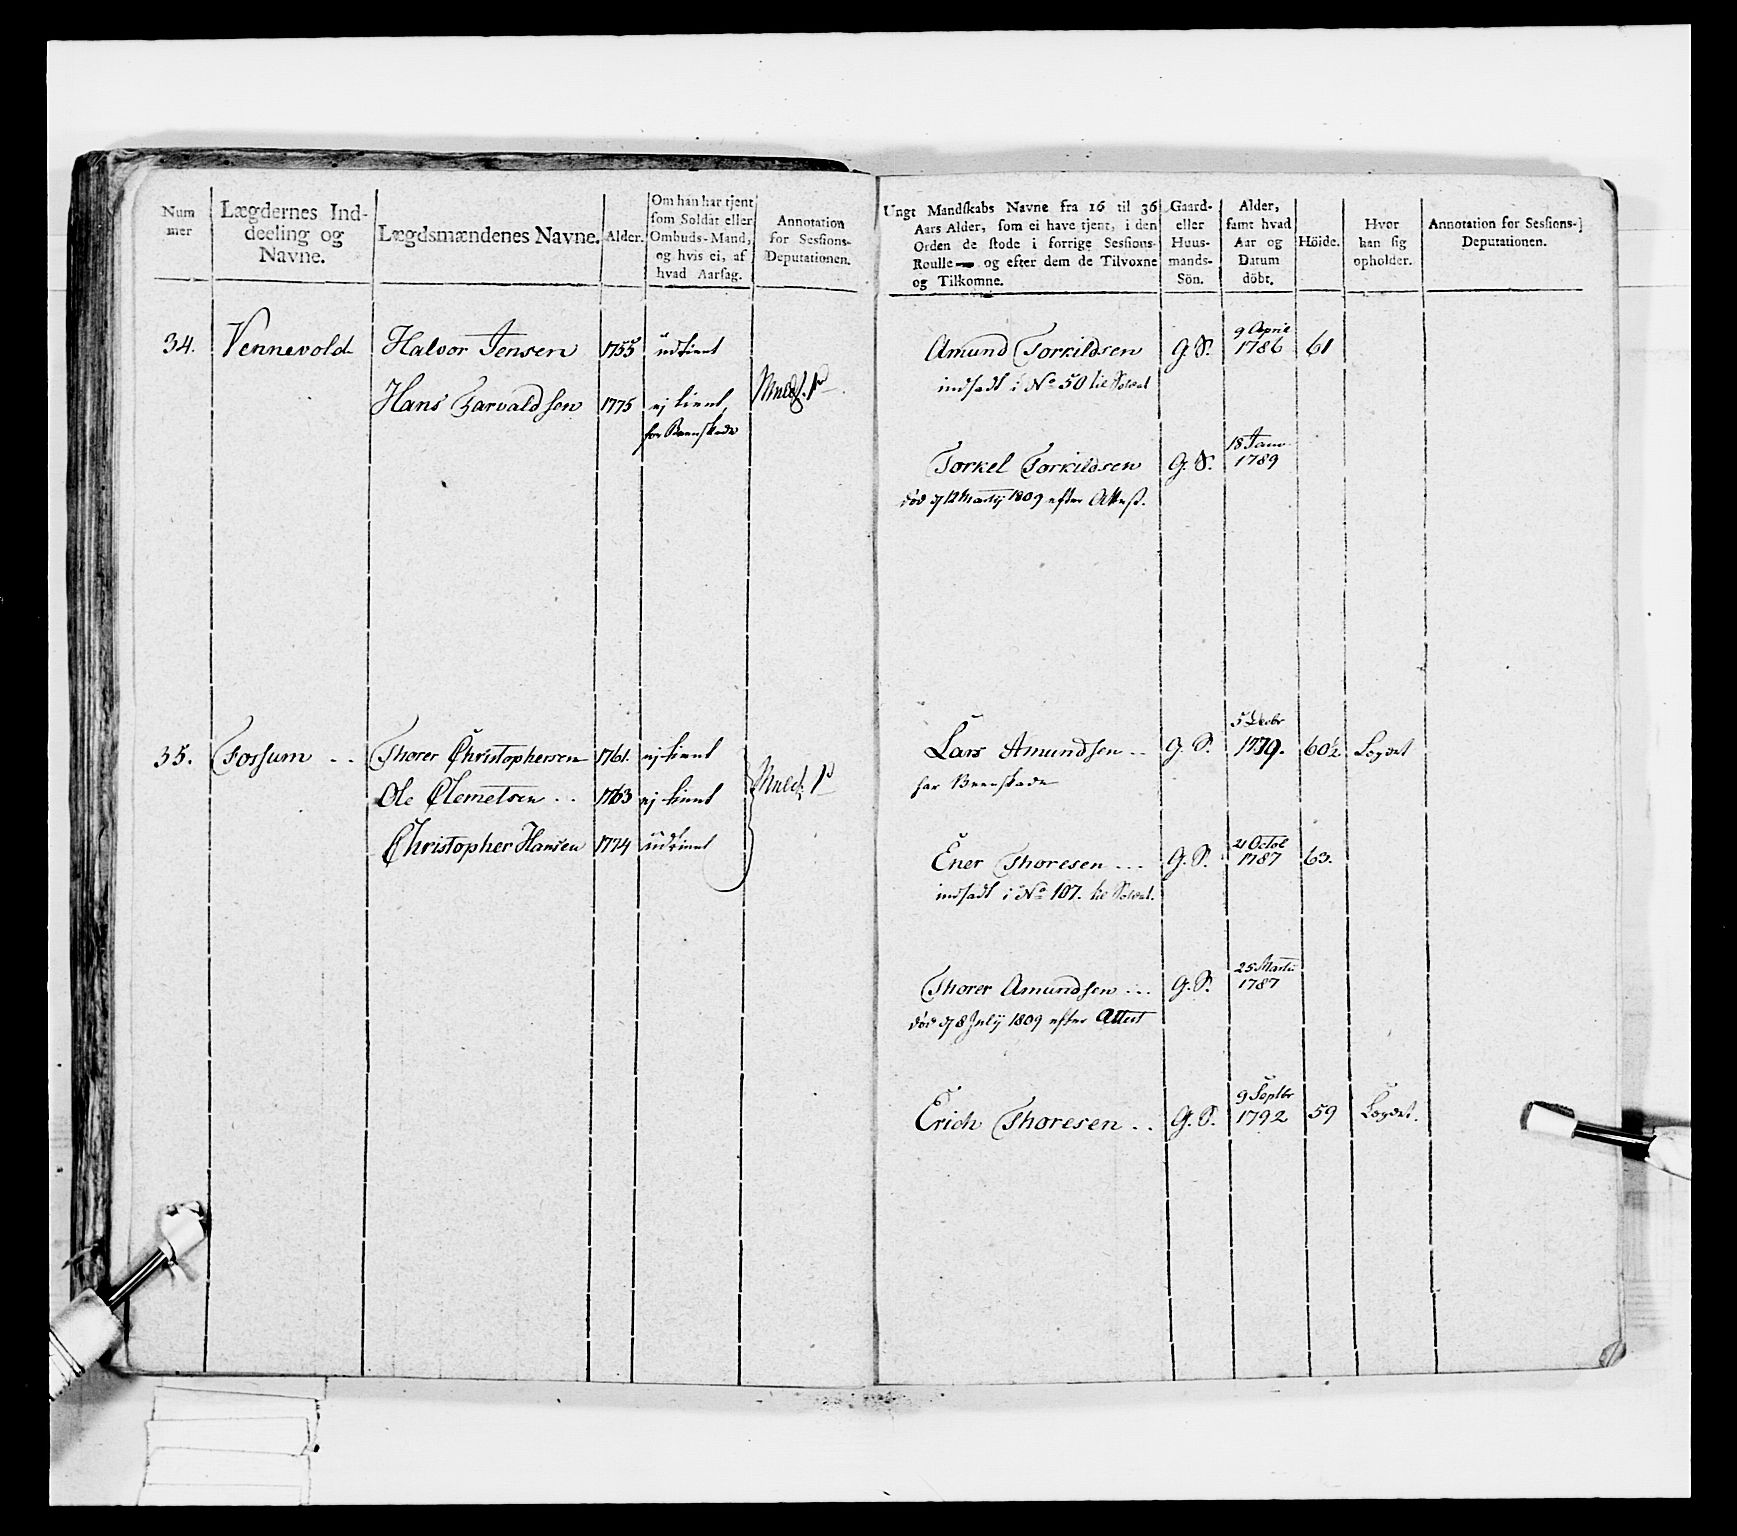 Num
mer
Lægdernes Ind-
deeling og
Navne.
Lægdsmændenes Navne.
Alder.
Om han har tjent
som Soldat eller
Ombuds-Mand,
og hvis ei, af
hvad Aarsag.
Annotation
for Sessions-
Deputationen.
34.
Vennevold
Halvor Jensen
1755
udtient
Hans Tarvaldsen
1775
ej tient
for Beenskade
35.
Fossum ..
Thorer Christophersen
1761.
ej tient
Ole Clemetsen ..
1763
ej tient
Christopher Hansen
1774
udtient
Ungt Mandskabs Navne fra 16 til 36
Aars Alder, som ei have tjent, i den
Orden de stode i forrige Sessions-
Roulle — og efter dem de Tilvoxne
og Tilkomne.
Gaard-
eller
Huus-
mands-
Sön.
Alder,
samt hvad
Aar og
Datum
döbt.
Höide.
Hvor
han sig
opholder.
Annotation for Sessions-
Deputationen.
9 April
Amund Torkildsen
G. S.
1786
61
indsadt i No 50 til Soldat
18 Janv.
Torkel Torkildsen
G. S.
1789
död d 12 Martij 1809 efter Attest.
5 Decbr
Lars Amundsen ..
G. S.
1779.
60½
Logdet
har Beenskade
21 Octob
Ener Thoresen ...
G. S.
1787
63.
indsadt i No 107. til Soldat.
25 Martii
Thorer Amundsen ...
G. S.
1787
död d 8 Julij 1809 efter Attest
9 Septbr
Erich Thoresen ..
G. S.
1792
59
Logdet.